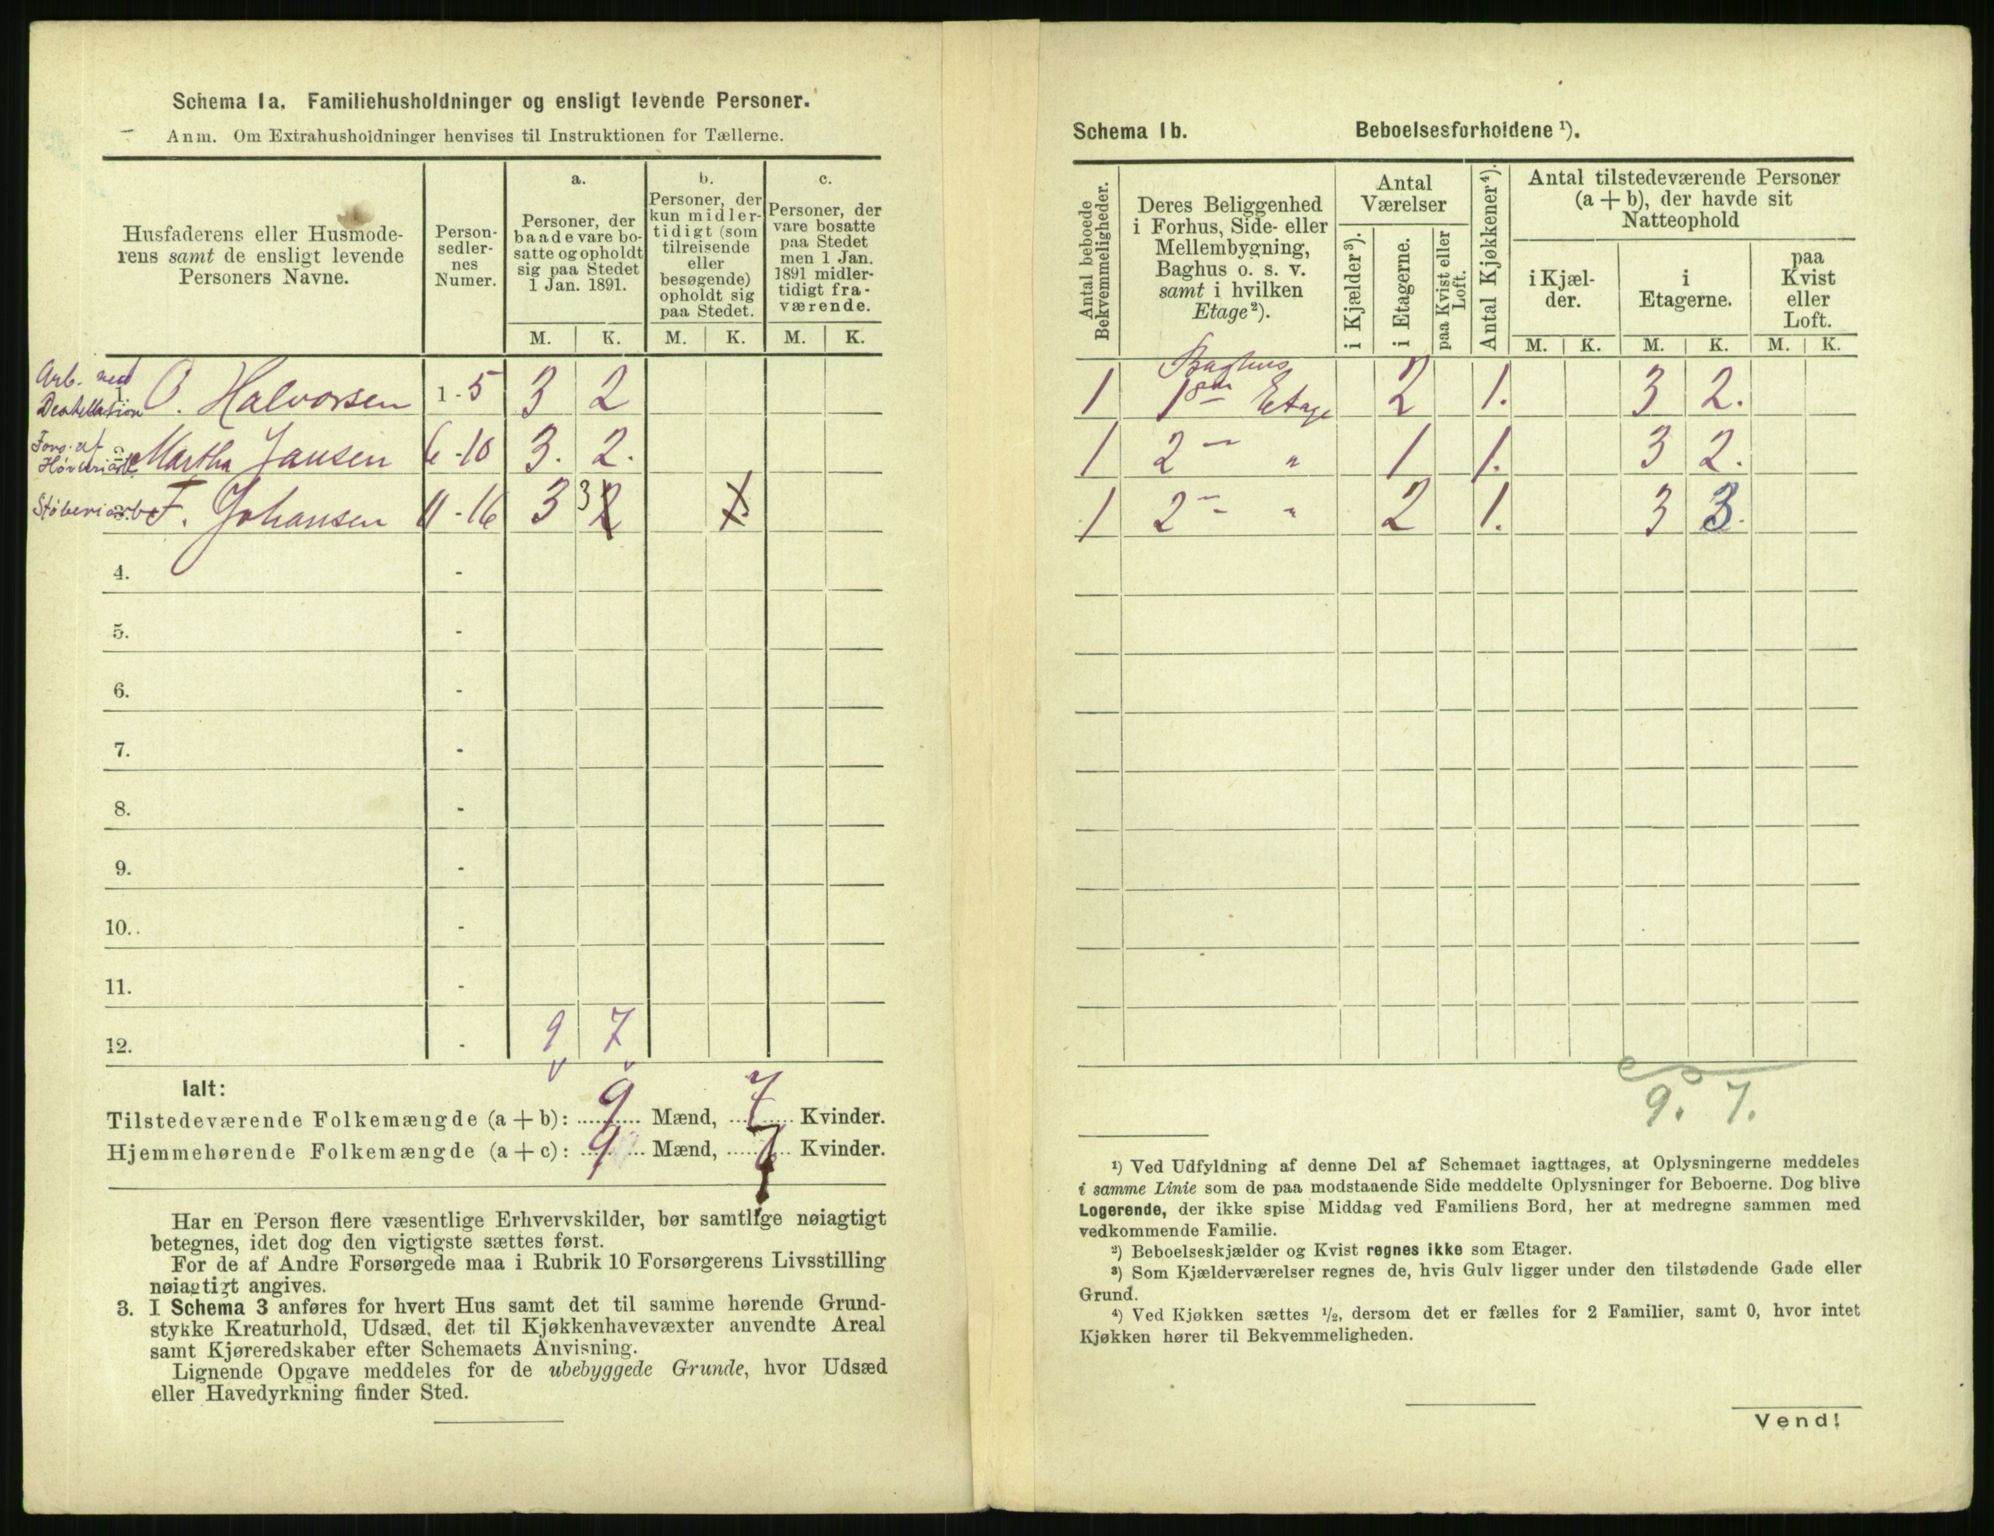 Schema 1a. Familiehusholdninger og ensligt levende Personer.
Anm. Om Extrahusholdninger henvises til Instruktionen for Tællerne.
Husfaderens eller Husmode-
rens samt de ensligt levende
Personers Navne.
Person-
sedler-
nes
Numer.
a.
Personer, der
baade vare bo-
satte og opholdt
sig paa Stedet
1 Jan. 1891.
b.
Personer, der
kun midler-
tidigt (som
tilreisende
eller
besøgende)
opholdt sig
paa Stedet.
c.
Personer, der
vare bosatte
paa Stedet
men 1 Jan.
1891 midler-
tidigt fra-
værende.
M. K. M. K. M. K.
Arb. ved
1. O. Halvorsen 1 - 5 3 2
Fors. af
2. Martha Jansen 6 - 10 3. 2.
3. F. Johansen 11 - 16 3 3 2 1
4. -
5. -
6. -
7. -
8. -
9. -
10. -
11. -
12. - 9 7
Ialt:
Tilstedeværende Folkemængde (a + b): 9 Mænd, 7 Kvinder.
Hjemmehørende Folkemængde (a + c): 9 Mænd, 7 Kvinder.
Har en Person flere væsentlige Erhvervskilder, bør samtlige nøiagtigt
betegnes, idet dog den vigtigste sættes først.
For de af Andre Forsørgede maa i Rubrik 10 Forsørgerens Livsstilling
nøiagtigt angives.
3. I Schema 3 anføres for hvert Hus samt det til samme hørende Grund-
stykke Kreaturhold, Udsæd, det til Kjøkkenhavevæxter anvendte Areal
samt Kjøreredskaber efter Schemaets Anvisning.
Lignende Opgave meddeles for de ubebyggede Grunde, hvor Udsæd
eller Havedyrkning finder Sted.
Schema 1b. Beboelsesforholdene ¹).
Antal beboede
Bekvemmeligheder.
Deres Beliggenhed
i Forhus, Side- eller
Mellembygning,
Baghus o. s. v.
samt i hvilken
Etage²).
Antal
Værelser
i Kjælder³).
i Etagerne.
paa Kvist eller
Loft.
Antal Kjøkkener⁴).
Antal tilstedeværende Personer
(a + b), der havde sit
Natteophold
i Kjæl-
der.
i
Etagerne.
paa
Kvist
eller
Loft.
M. K. M. K. M. K.
Baghus
1 1ste Etage 2 1. 3 2.
1 2 — " 1 1. 3 2.
1 2 — " 2 1. 3 3.
9. 7.
¹) Ved Udfyldning af denne Del af Schemaet iagttages, at Oplysningerne meddeles
i samme Linie som de paa modstaaende Side meddelte Oplysninger for Beboerne. Dog blive
Logerende, der ikke spise Middag ved Familiens Bord, her at medregne sammen med
vedkommende Familie.
²) Beboelseskjælder og Kvist regnes ikke som Etager.
³) Som Kjælderværelser regnes de, hvis Gulv ligger under den tilstødende Gade eller
Grund.
⁴) Ved Kjøkken sættes ½, dersom det er fælles for 2 Familier, samt 0, hvor intet
Kjøkken hører til Bekvemmeligheden.
Vend!